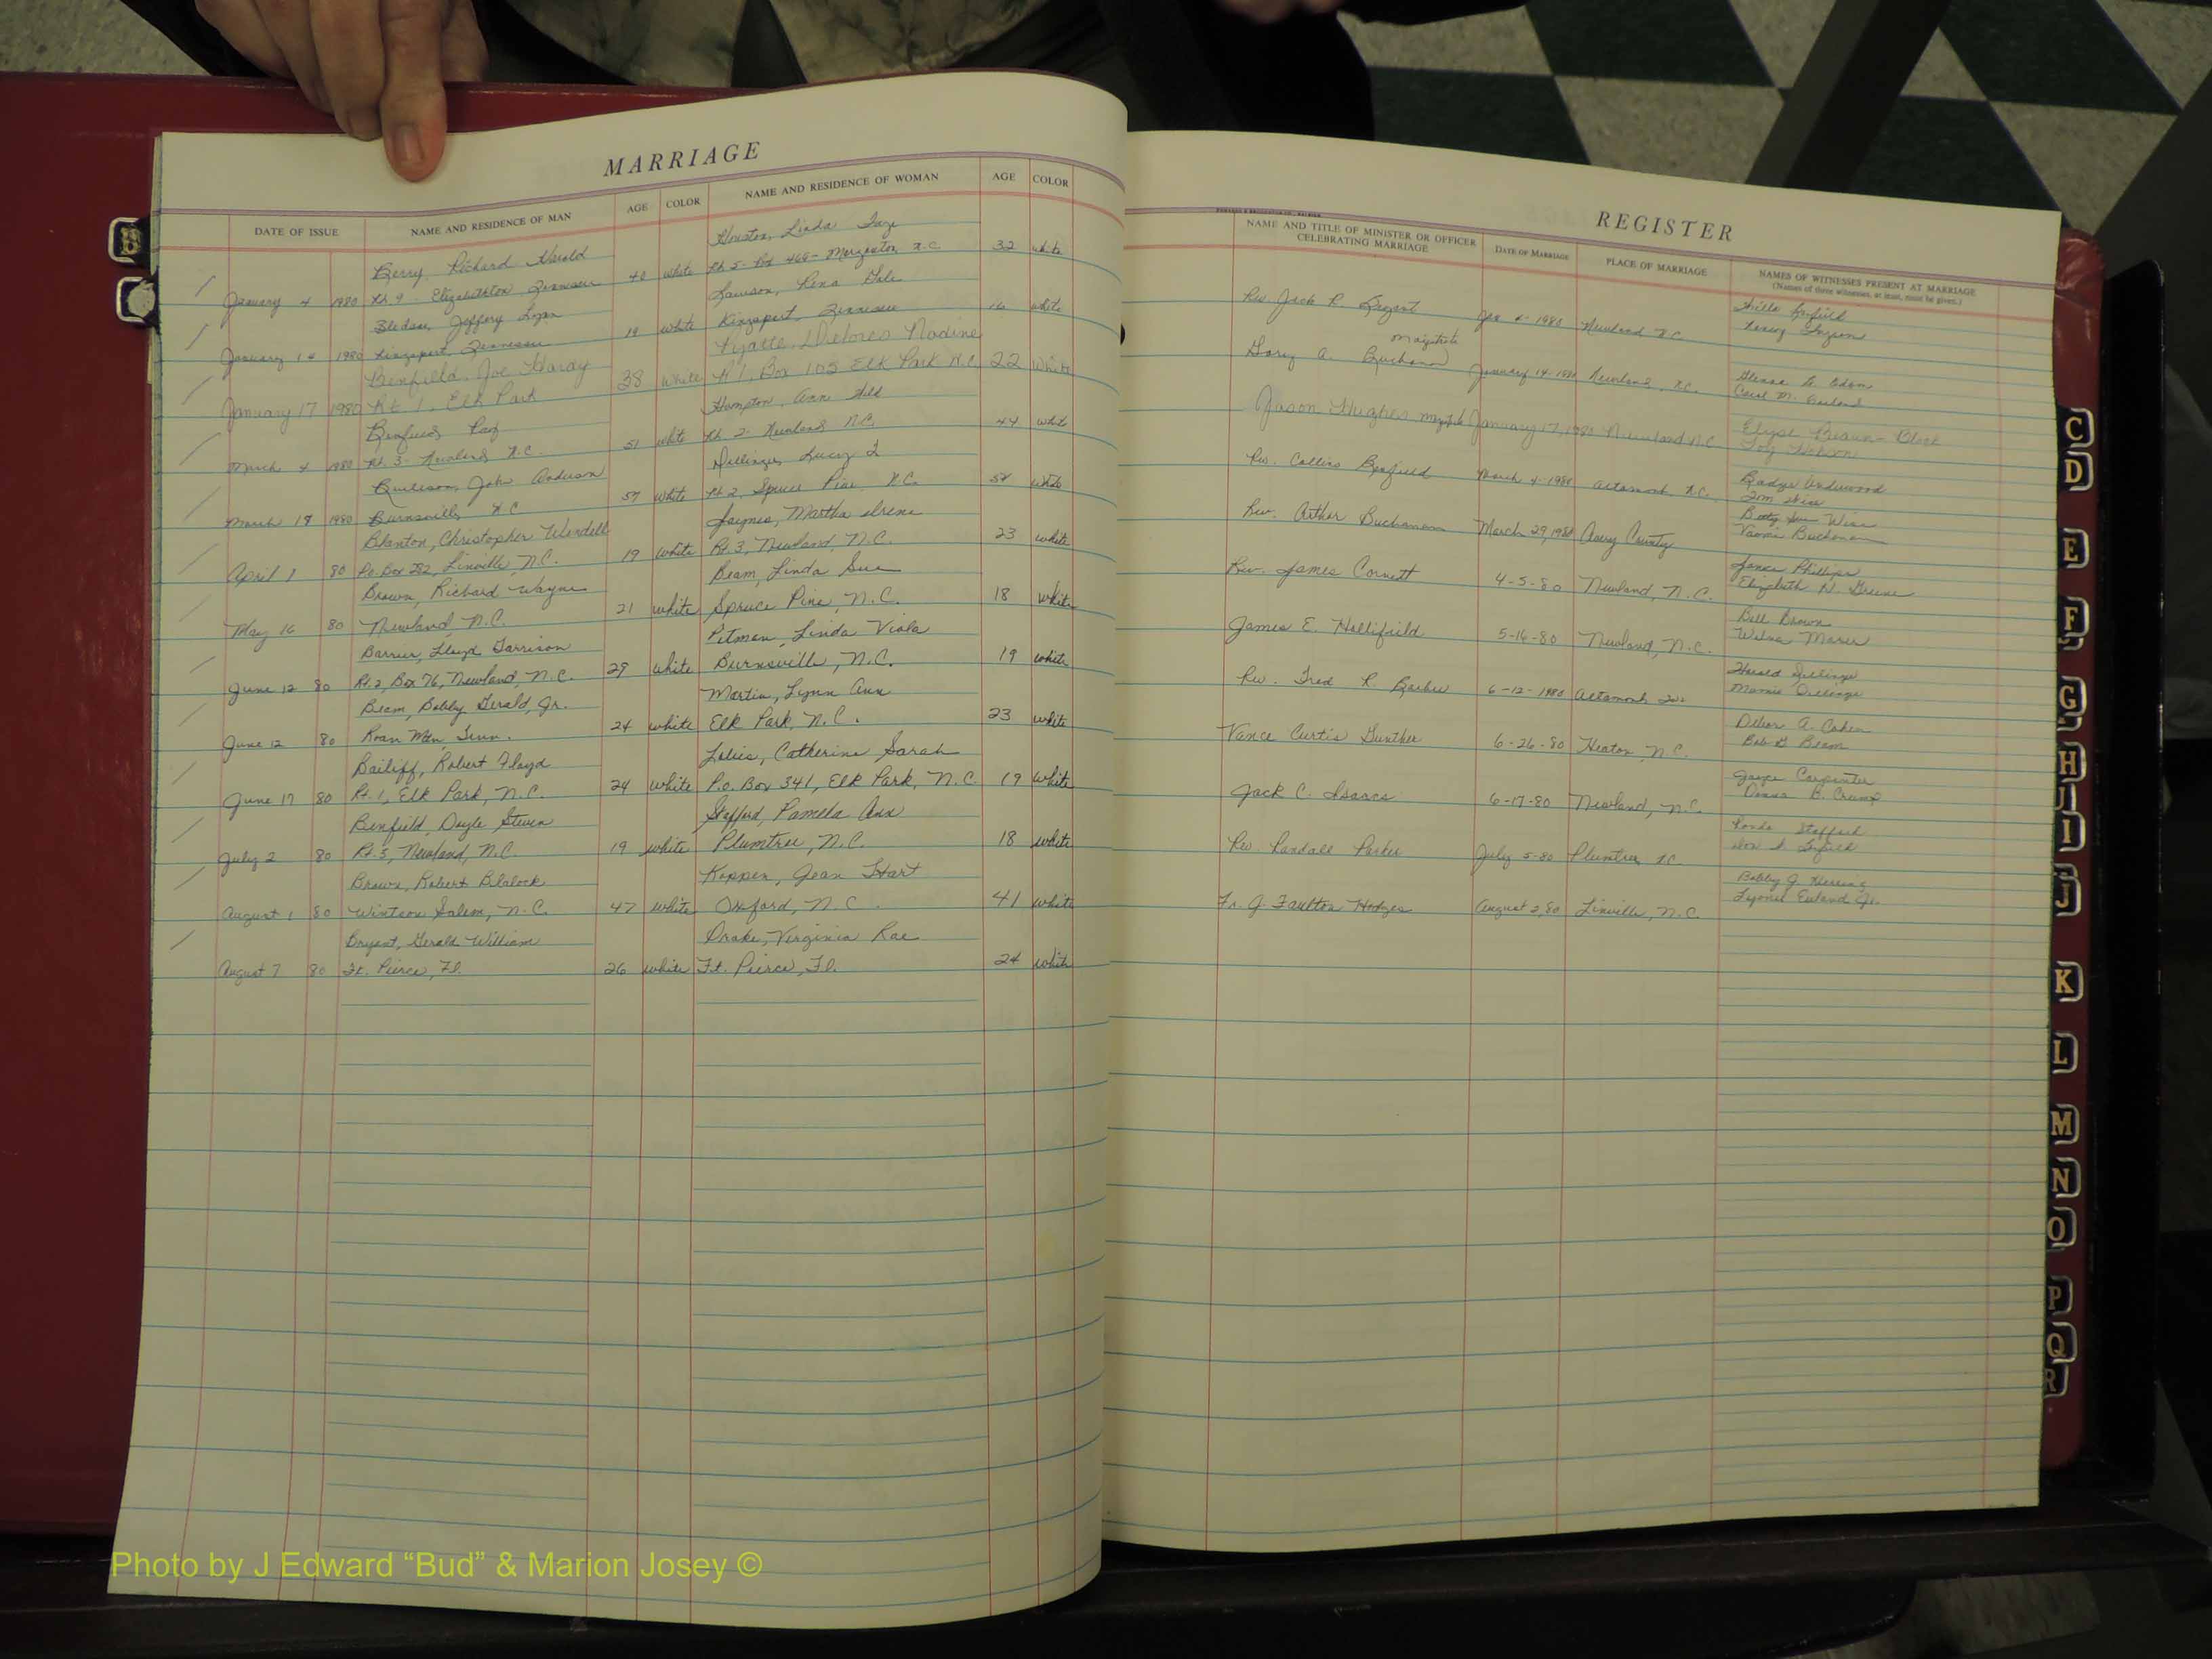 MARRIAGE
DATE OF ISSUE NAME AND RESIDENCE OF MAN AGE COLOR NAME AND RESIDENCE OF WOMAN AGE COLOR
Berry, Richard Harold Houston, Linda Faye
January 4 1980 Rt. 9 - Elizabethton, Tennessee 40 white Rt 5 - Morganton, N.C. 32 white
Bledsoe, Jeffery Lynn Lawson, Rena Gale
January 1980 Kingsport, Tennessee 19 white Kingsport, Tennessee 16 white
Benfield, Joe Hardy Pyatte, Delores Nadine
January 17 1980 Rt. 1, Elk Park 38 white Rt 1, Box 105 Elk Park N.C. 22 White
Benfield Hampton, Ann
March 4 1980 Rt. 3 - Newland N.C. 51 white Rt. 2 - Newland N.C. 44 white
Burleson, John Anderson Dellinger, Lucy
March 1980 Burnsville N.C 57 white Rt 2, Spruce Pine N.C. white
Blanton, Christopher Wendell Jaynes, Martha Irene
April 1 80 P.O. Box 282, Linville, N.C. 19 white Rt. 3, Newland, N.C. 23 white
Brown, Richard Wayne Beam, Linda Sue
May 16 80 Newland, N.C. 21 white Spruce Pine, N.C. 18 white
Barrier, Lloyd Garrison Pitman, Linda Viola
June 12 80 Rt. 2, Box 76, Newland, N.C. 29 white Burnsville, N.C. 19 white
Beam, Bobby Gerald, Jr. Martin, Lynn Ann
June 12 80 Roan Mtn, Tenn. 24 white Elk Park, N.C. 23 white
Bailiff, Robert Floyd Catherine Sarah
June 17 80 Rt. 1, Elk Park, N.C. 24 white P.O. Box 341, Elk Park, N.C. 19 white
Benfield, Doyle Steven Stafford, Pamela Ann
July 2 80 Rt. 3, Newland, N.C. 19 white Plumtree, N.C. 18 white
Brown, Robert Blalock Koppen, Jean Hart
August 1 80 Winston Salem, N.C. 47 white Oxford, N.C. 41 white
Bryant, Gerald William Drake, Virginia Rae
August 7 80 Ft. Pierce, Fl. 26 white Ft. Pierce, Fl. 24 white
REGISTER
NAME AND TITLE OF MINISTER OR OFFICER CELEBRATING MARRIAGE DATE OF MARRIAGE PLACE OF MARRIAGE NAMES OF WITNESSES PRESENT AT MARRIAGE
(Names of three witnesses, at least, must be given.)
Rev. Jack R. Jan 4-1980 Newland N.C.
Magistrate
Gary A. Buchanan January 14-1980 Newland, N.C.
Jason Hughes January 17, 1980 Newland N.C.
Rev. Collins Benfield March 4-1980 Altamont N.C. Underwood
Tom Wise
Rev. Arthur Buchanan March 29, 1980 Avery County Betty Sue Wise
Buchanan
Rev. James Cornett 4-5-80 Newland, N.C. Phillips
Elizabeth Greene
James E. Hollifield 5-16-80 Newland, N.C. Bill Brown
Rev. Fred R. Barber 6-12-1980 Altamont
Vance Curtis Gunther 6-26-80 Heaton, N.C. A. Cohen
Bob G Beam
Jack C. Isaacs 6-17-80 Newland, N.C. Carpenter
B. Crump
Rev. Randall Parker July 5-80 Plumtree N.C. Stafford
Fr. J. Faulton Hodges August 2, 80 Linville, N.C. Bobby J. Herring
C
D
E
F
G
H
I
J
K
L
M
N
O
P
Q
R
Photo by J Edward “Bud” & Marion Josey ©